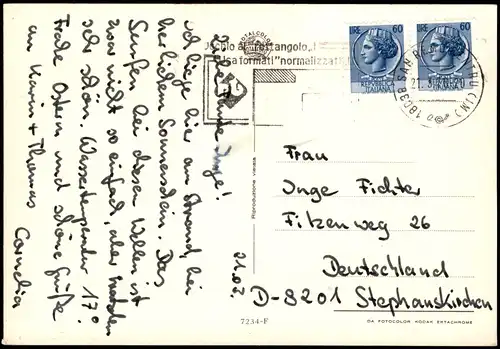 Liebe Tante Inge!
Ich liege hier am Strand, bei
herrlichem Sonnenschein. Das
Surfen bei diesen Wellen ist
zwar nicht so einfach, aber trotzdem
sehr schön. Wassertemperatur 17°
Frohe Ostern und schöne Grüße
an Karin + Thomas
Cornelia
21.03.
Riproduzione vietata
7234-F
POSTALCODE
rettangolo
usa formati "normalizzati"
LIRE 60
LIRE 60
ITALIANA
18038 SAN
(IM)
Frau
Inge Fichter
Fitzenweg 26
Deutschland
D-8201 Stephanskirchen
DA FOTOCOLOR KODAK EKTACHROME